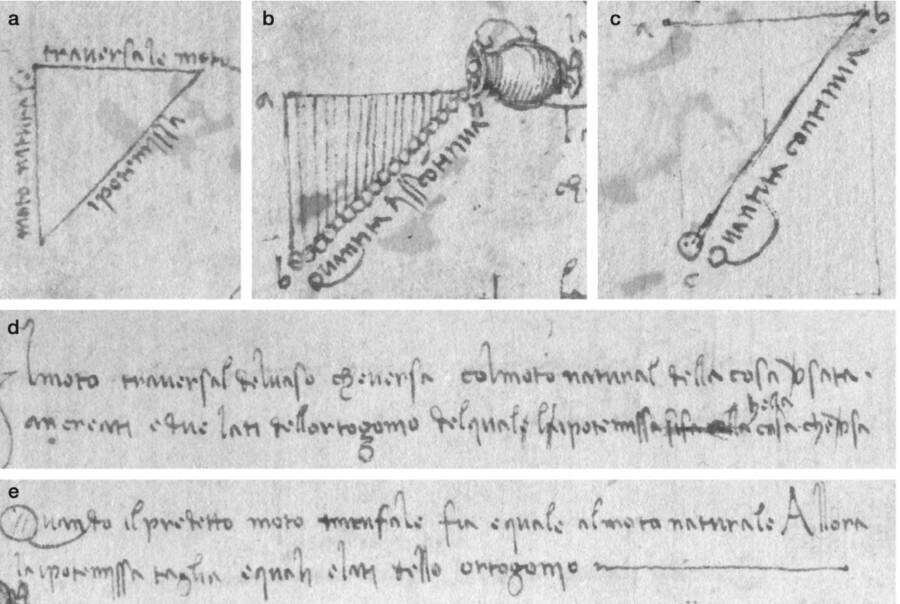 a
traversale moto
moto naturale
ipotemissa
b
a
b
Quantita discōtinua
c
a
b
Quantita continua
c
d
Il moto traversal del vaso che versa col moto natural della cosa
an creati e due lati dell ortogonio del quale la ipotemissa
hella
cosa che
e
Quando il predetto moto fia equale al moto naturale Allora
la ipotemissa taglia equali e lati dello ortogonio